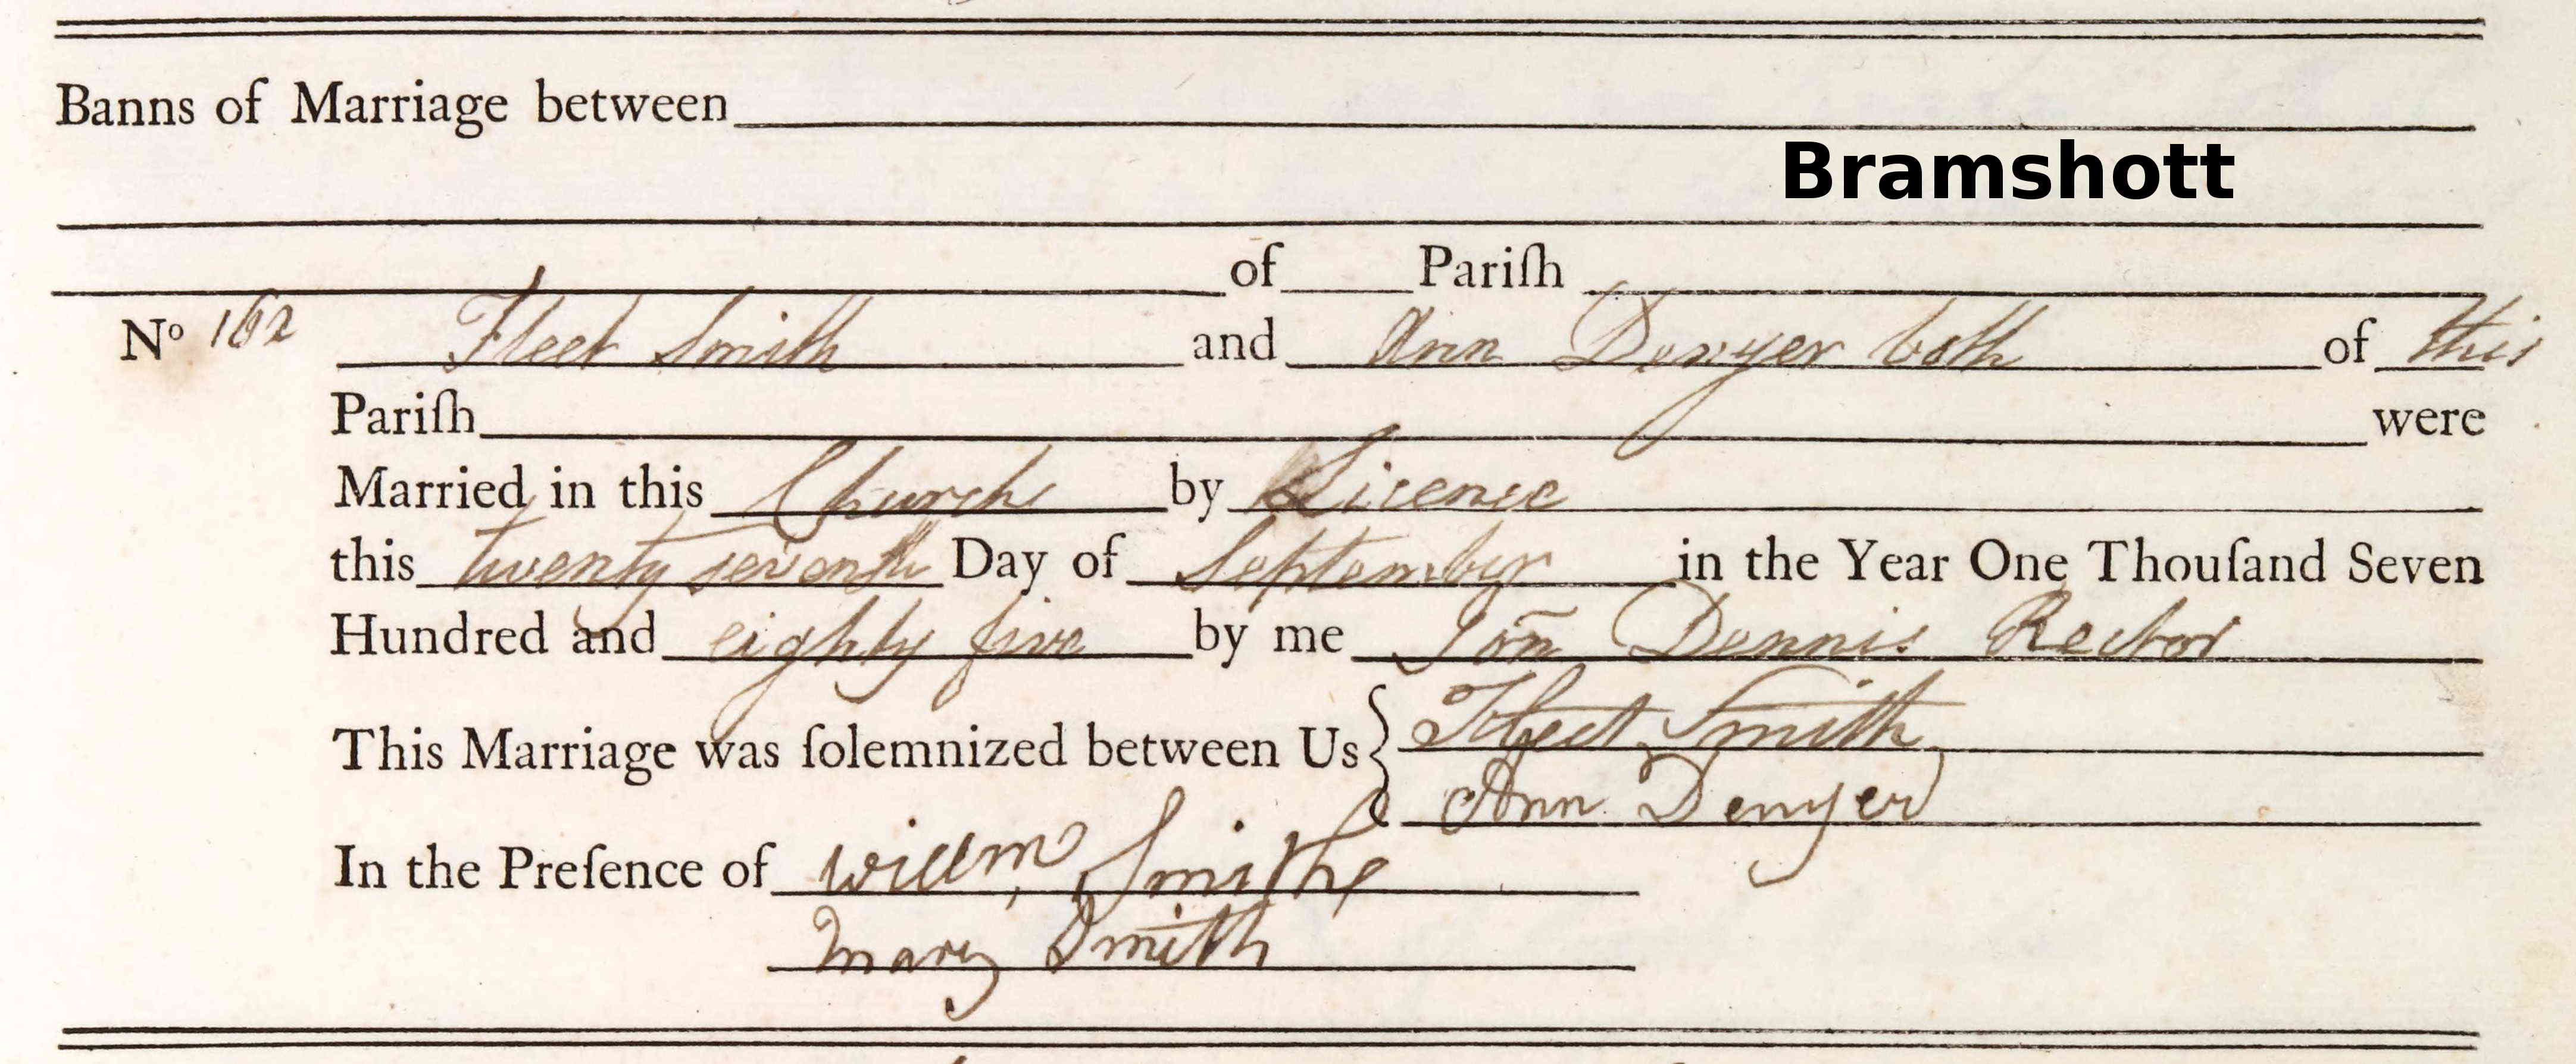 Banns of Marriage between
Bramshott
of Pariſh
No 162 Fleet Smith and Ann Denyer both of this
Pariſh were
Married in this Church by Licence
this twenty seventh Day of September in the Year One Thouſand Seven
Hundred and eighty five by me Jon̄ Dennis Rector
This Marriage was ſolemnized between Us Fleet Smith
Ann Denyer
In the Preſence of Willm Smith
Mary Smith